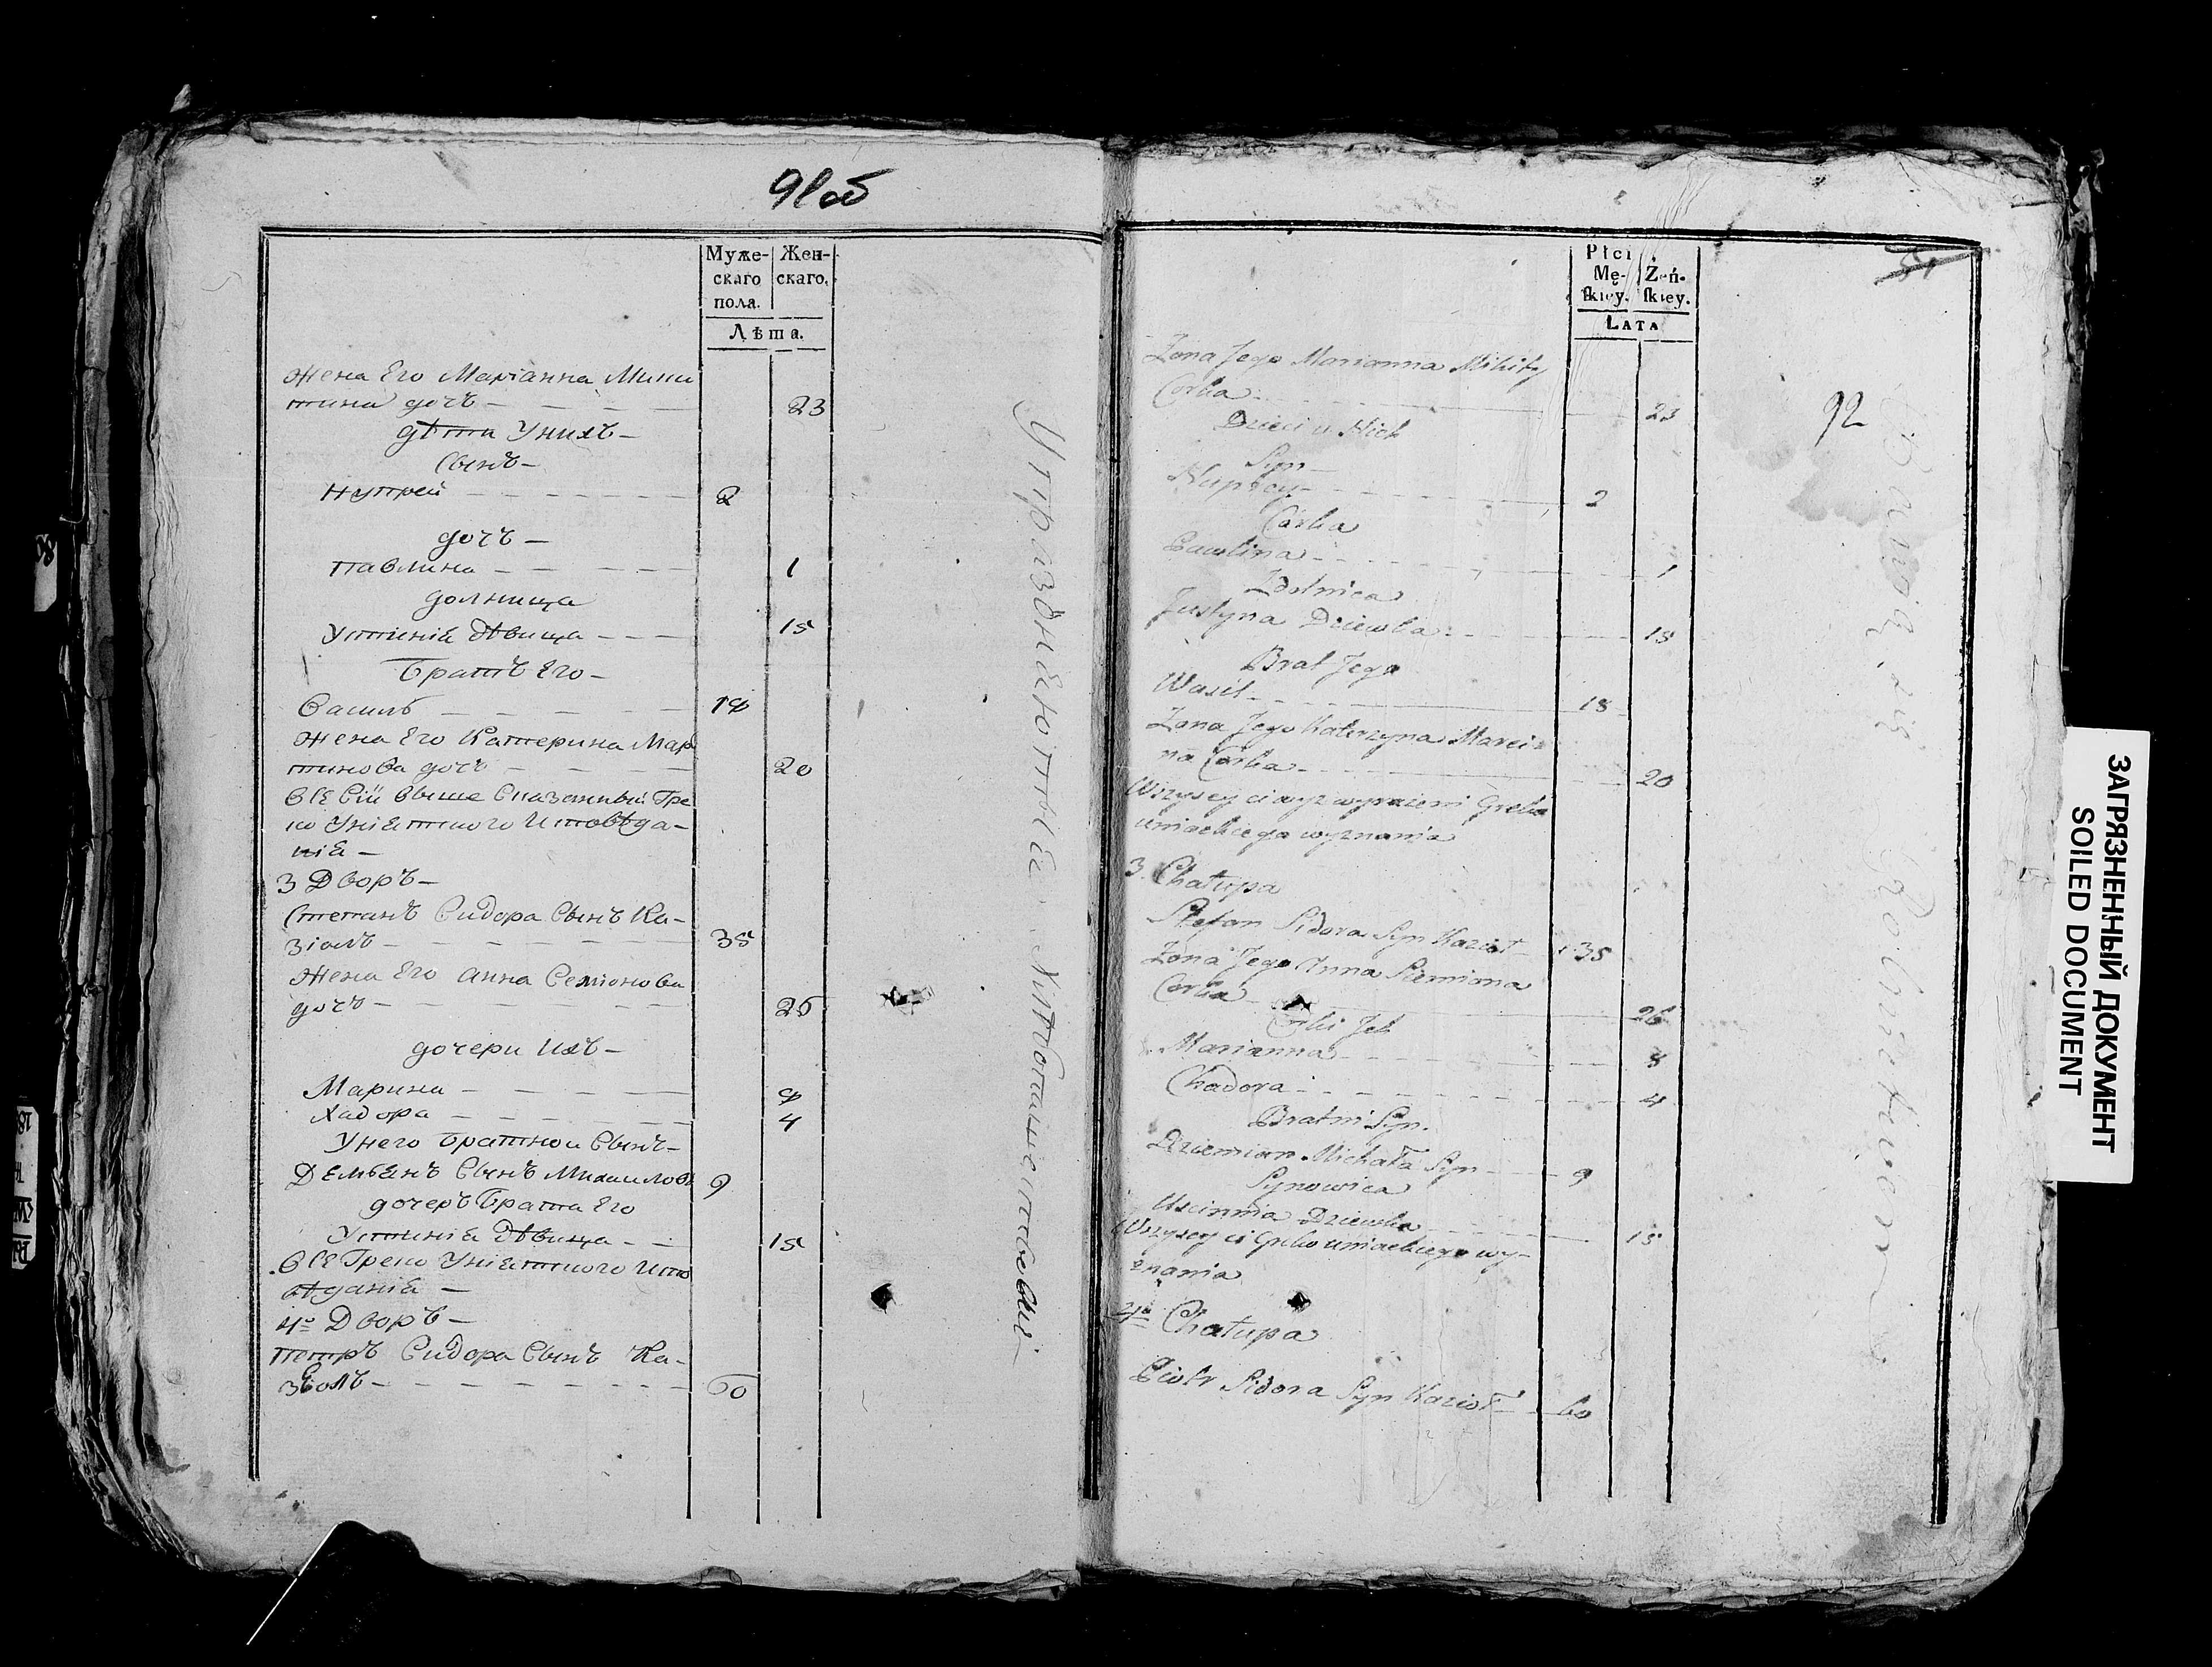 91 об
Муже-
скаго
пола.
Жен-
скаго.
Лѣта.
Жена Его Маріанна Мики
тина дочь 23
дѣти Унихъ
Сынъ
Нупрей 2
дочь
Павлина 1
Устинія дѣвица 15
Братъ Его
Василь 18
Жена Его Катерина Мар
тинова дочь 20
все Сіи выше Сказанныи Гре
ко Уніятского Исповѣда-
нія
3 Дворъ
Степанъ Сидора Сынъ Ка-
зіолъ 35
Жена Его Анна Семіонова
дочь 26
дочери Ихъ
Марина 8
Хадора 4
Унего братнои Сынъ
Демьянъ Сынъ Михаилова 9
дочеръ Брата Его
Устинія дѣвица 15
все Греко Уніятского Испо
вѣданія
4º Дворъ
Петръ Сидора Сынъ Ка-
зіолъ 60
92
Płci
Mę-
skiey.
Żeń-
skiey.
LATA
Zona Jego Marianna Mikity
Corka 23
Dzieci u Nich
Syn
Nuprey 2
Córka
Pawlina 1
Justyna Dziewka 15
Brat Jego
Wasil 18
Zona Jego Katerzyna Marci-
na Corka 20
Wszyscy ci wyz wyrazieni Greko
uniackiego wyznania
3. Chałupa
Stefan Sidora Syn Kazioł 35
Zona Jego Anna Siemiona
Corka 26
Corki Ich
Marianna 8
Chadora 4
Bratni Syn.
Dziemian Michała Syn 9
Synowica
Uscinnia Dziewka 15
Wszyscy ci Greko uniackiego wy-
znania
4a Chałupa
Piotr Sidora Syn Kazioł 60
ЗАГРЯЗНЕННЫЙ ДОКУМЕНТ
SOILED DOCUMENT